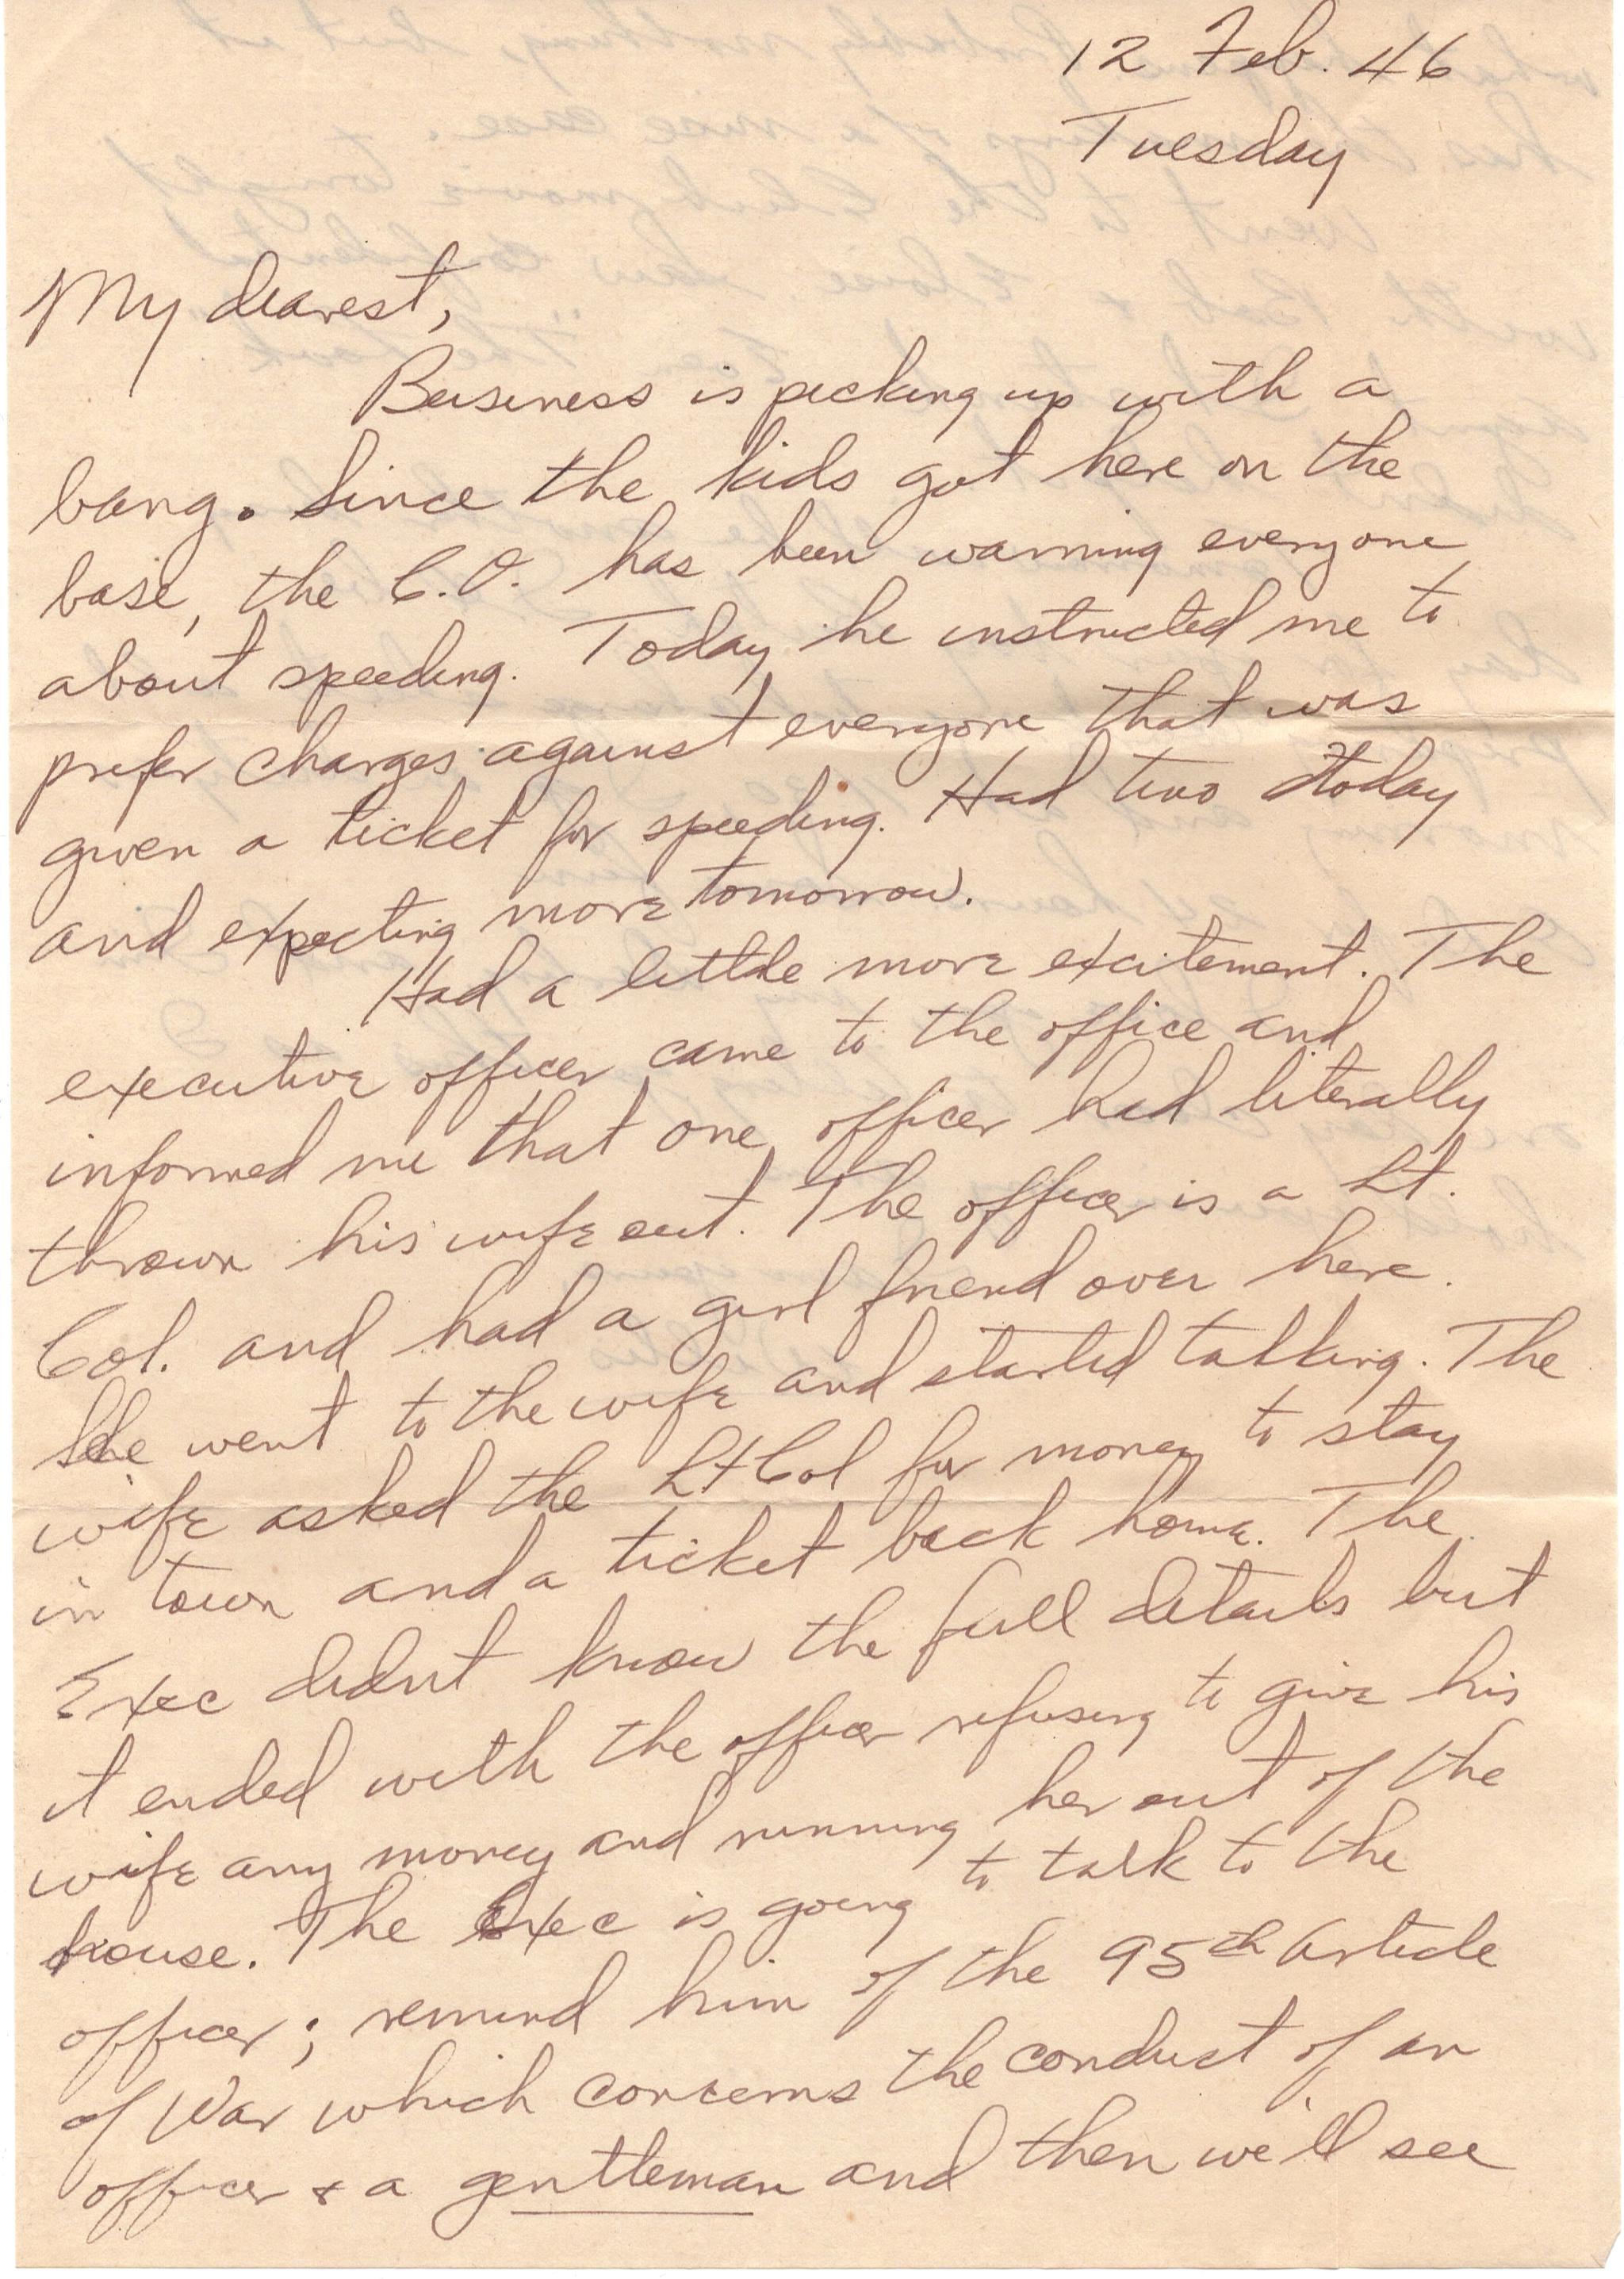 12 Feb. 46
Tuesday
My dearest,
Business is picking up with a
bang. Since the kids got here on the
base, the C.O. has been warning everyone
about speeding. Today he instructed me to
prefer charges against everyone that was
given a ticket for speeding. Had two today
and expecting more tomorrow.
Had a little more excitement. The
executive officer came to the office and
informed me that one officer had literally
thrown his wife out. The officer is a Lt.
Col. and had a girl friend over here.
She went to the wife and started talking. The
wife asked the Lt Col for money to stay
in town and a ticket back home. The
Exec didn't know the full details but
it ended with the officer refusing to give his
wife any money and running her out of the
house. The Exec is going to talk to the
officer; remind him of the 95th Article
of War which concerns the conduct of an
officer & a gentleman and then we'll see